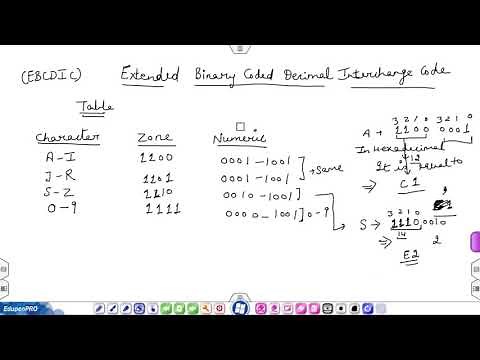 (EBCDIC) Extended Binary Coded Decimal Interchange Code
Table
Character Zone Numeric
A-I 1100 0001-1001
J-R 1101 0001-1001
→ Same
S-Z 1110 0010-1001
0-9 1111 0000-1001] 0-9
3 2 1 0 3 2 1 0
A → 1100 0001
In Hexadecimal 12
It is equal to
⇒ C1
3 2 1 0
S → 1110,0010
⇒ 14 2
E2
EdupenPRO